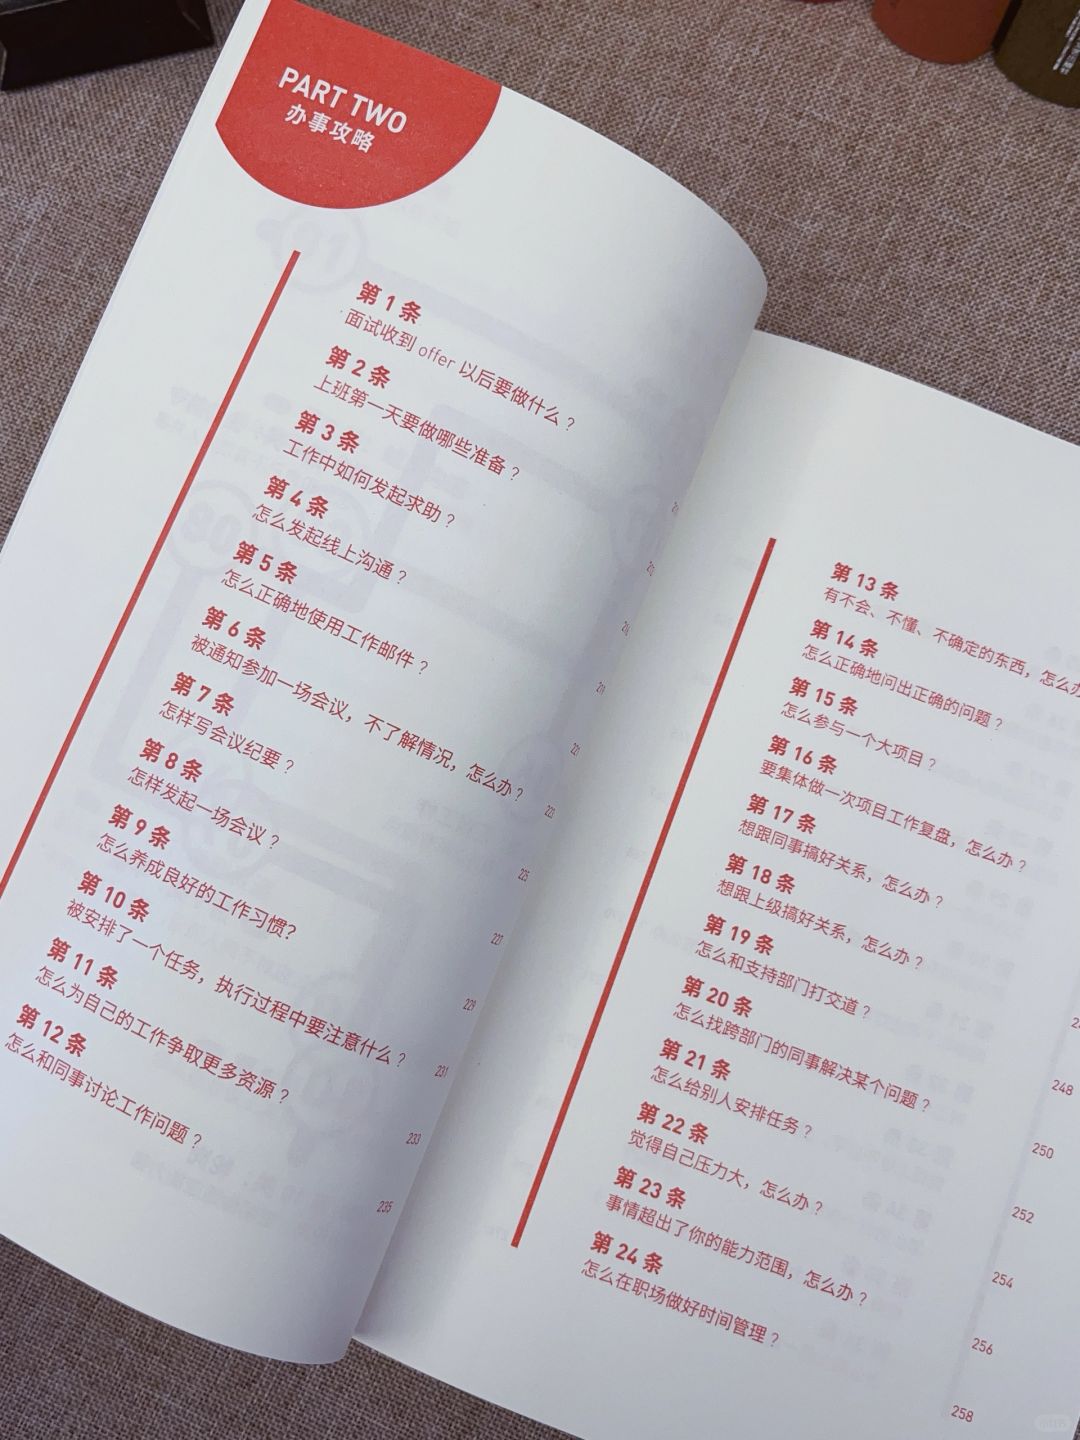 PART TWO
办事攻略
第 1 条
面试收到 offer 以后要做什么？
第 2 条
上班第一天要做哪些准备？
第 3 条
工作中如何发起求助？
第 4 条
怎么发起线上沟通？
第 5 条
怎么正确地使用工作邮件？
第 6 条
被通知参加一场会议，不了解情况，怎么办？
第 7 条
怎样写会议纪要？
第 8 条
怎样发起一场会议？
第 9 条
怎么养成良好的工作习惯？
第 10 条
被安排了一个任务，执行过程中要注意什么？
第 11 条
怎么为自己的工作争取更多资源？
第 12 条
怎么和同事讨论工作问题？
219
221
223
225
227
229
231
233
235
第 13 条
有不会、不懂、不确定的东西，怎么办
第 14 条
怎么正确地问出正确的问题？
第 15 条
怎么参与一个大项目？
第 16 条
要集体做一次项目工作复盘，怎么办？
第 17 条
想跟同事搞好关系，怎么办？
第 18 条
想跟上级搞好关系，怎么办？
第 19 条
怎么和支持部门打交道？
第 20 条
怎么找跨部门的同事解决某个问题？
第 21 条
怎么给别人安排任务？
第 22 条
觉得自己压力大，怎么办？
第 23 条
事情超出了你的能力范围，怎么办？
第 24 条
怎么在职场做好时间管理？
248
250
252
254
256
258